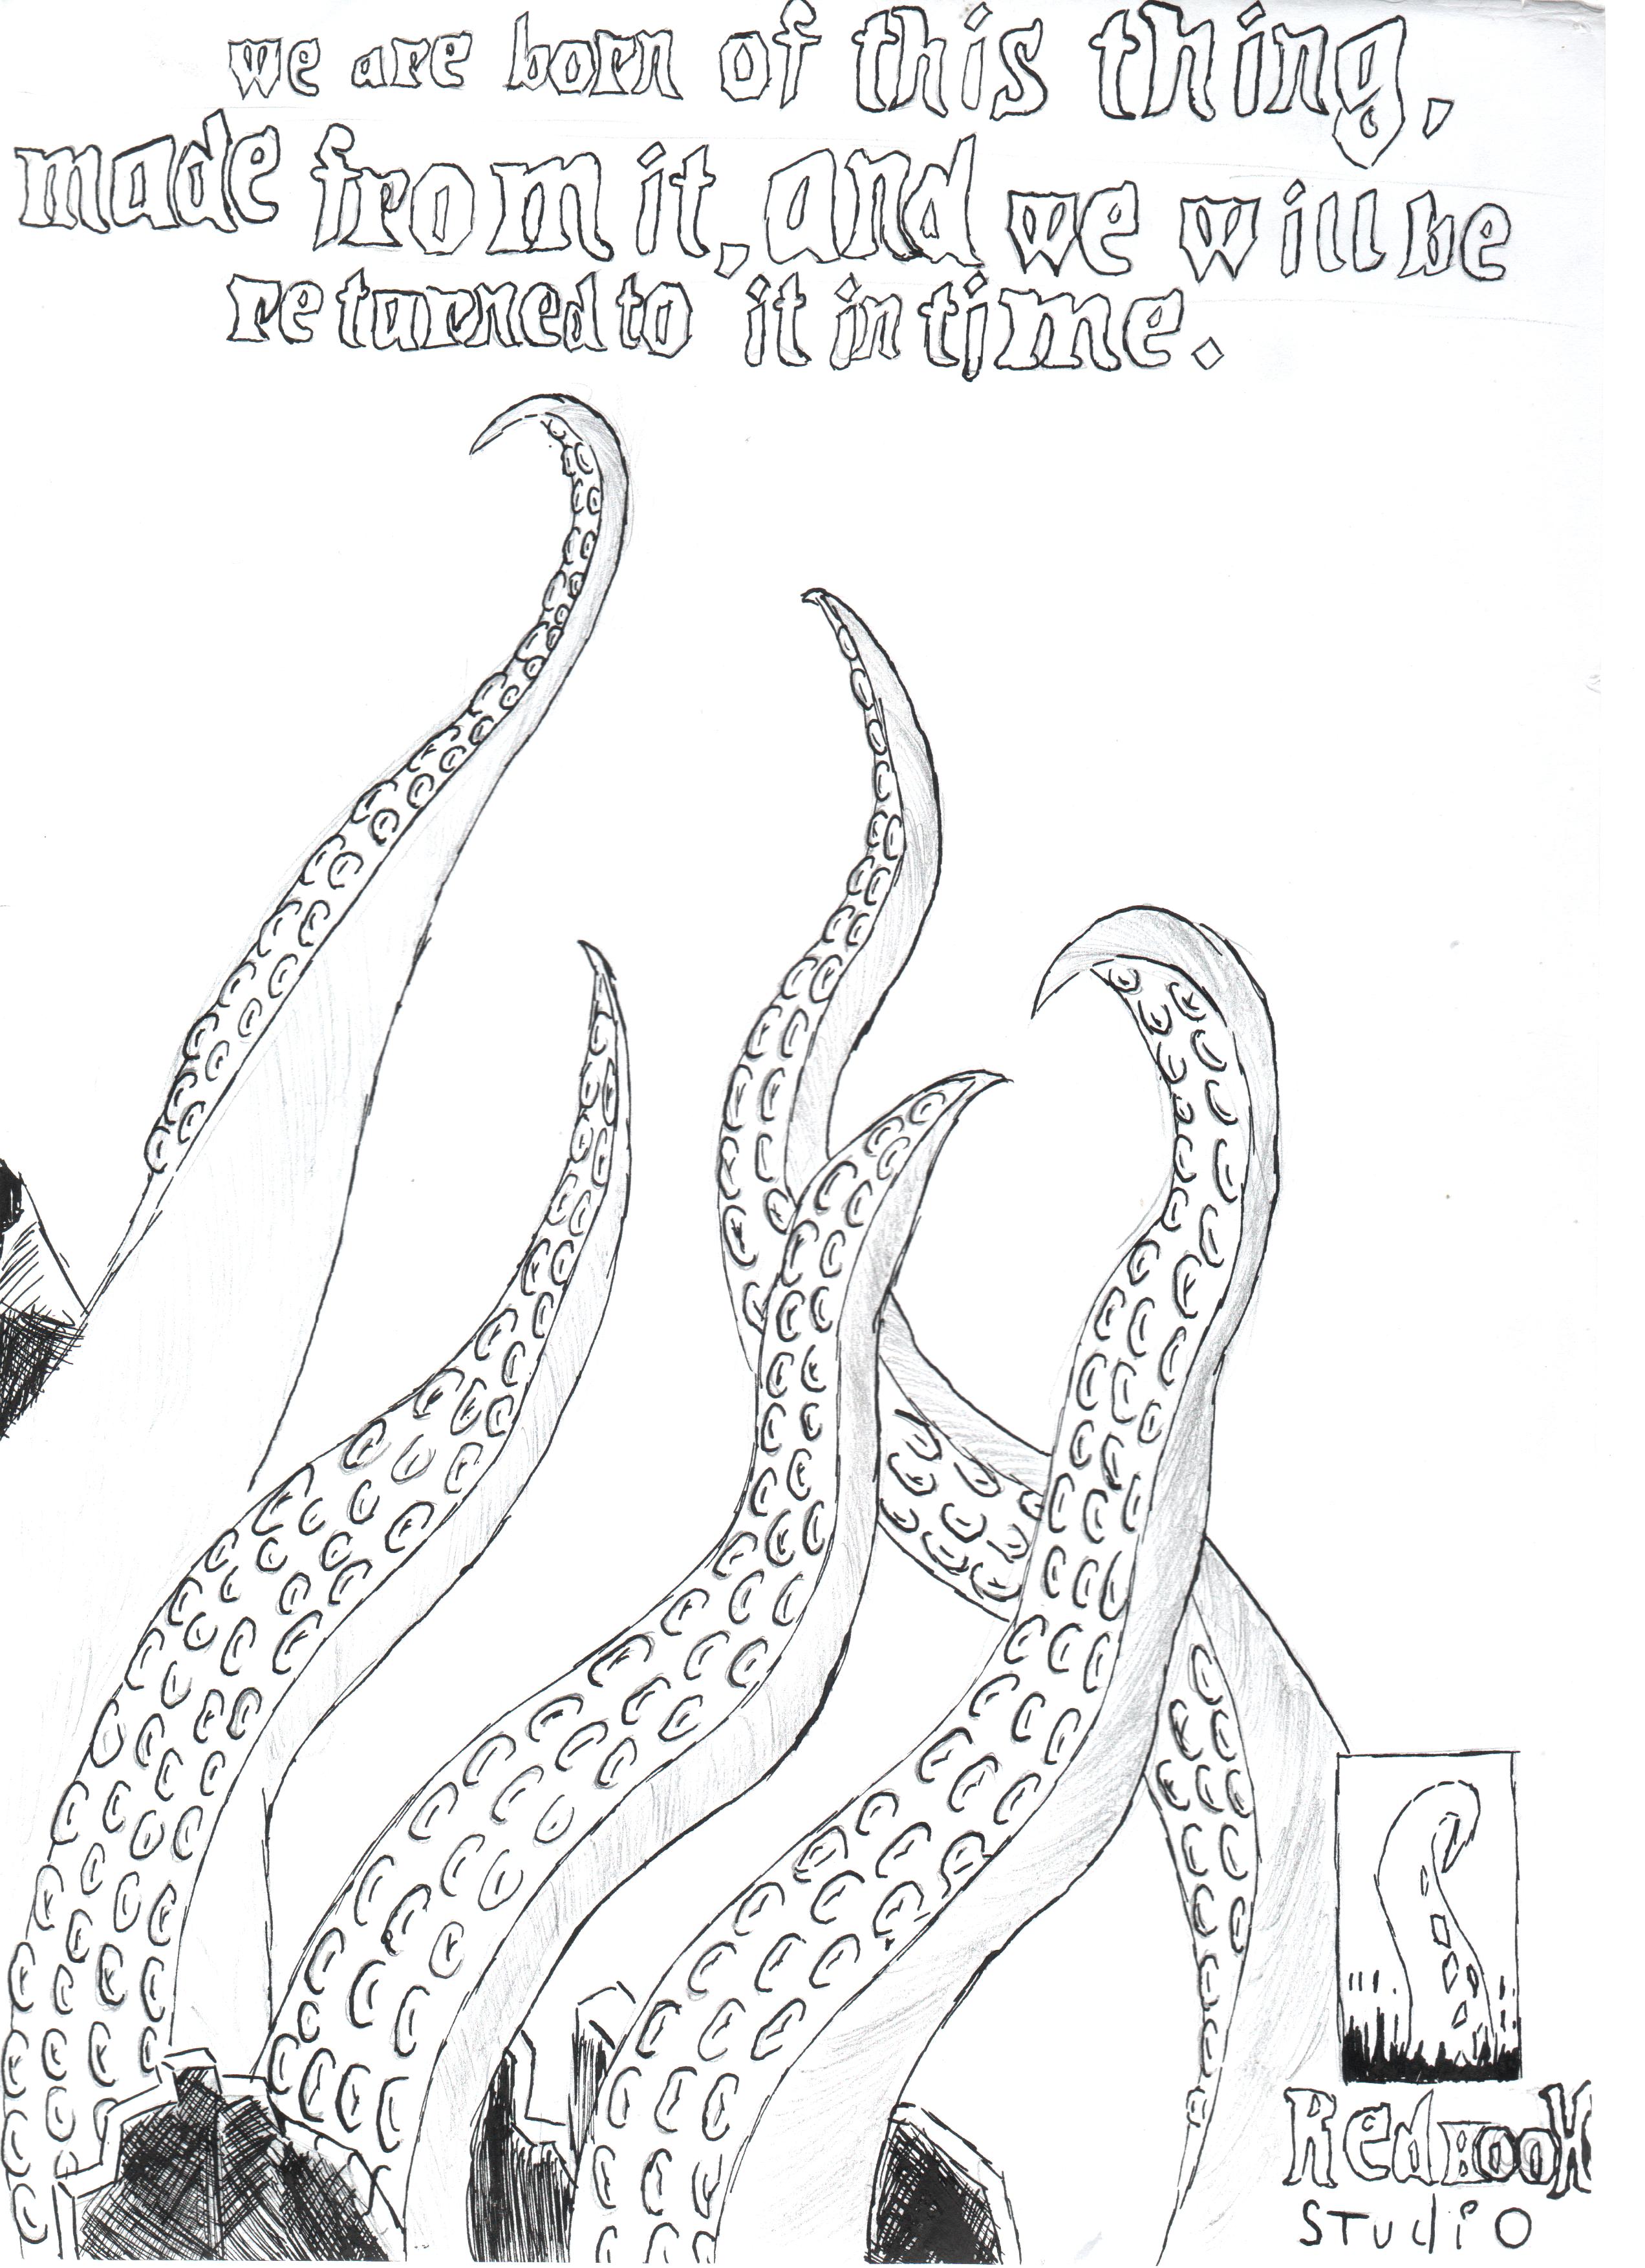 we are born of this thing,
made from it, and we will be
returned to it in time.
RedBOOK
STUdiO